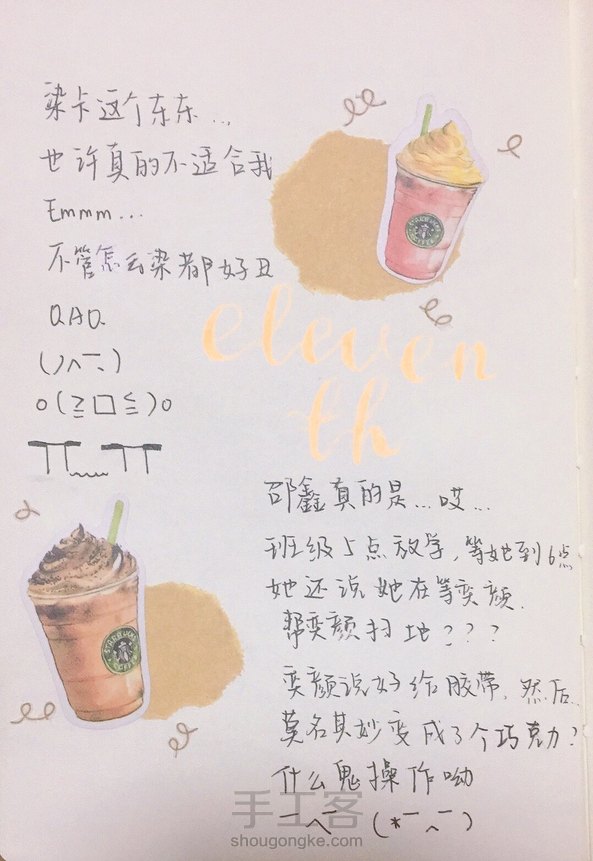 染卡这个东东...
也许真的不适合我
Emmm...
不管怎么染都好丑
QAQ
(ノへ￣、)
o(≧口≦)o
TT﹏TT
eleven
th
邵鑫真的是...哎...
班级5点放学，等她到6点
她还说她在等奕颜.
帮奕颜扫地???
奕颜说好给胶带，然后..
莫名其妙变成了个巧克力?
什么鬼操作呦
一へ￣ (*￣︿￣)
STARBUCKS
COFFEE
STARBUCKS
COFFEE
手工客
shougongke.com